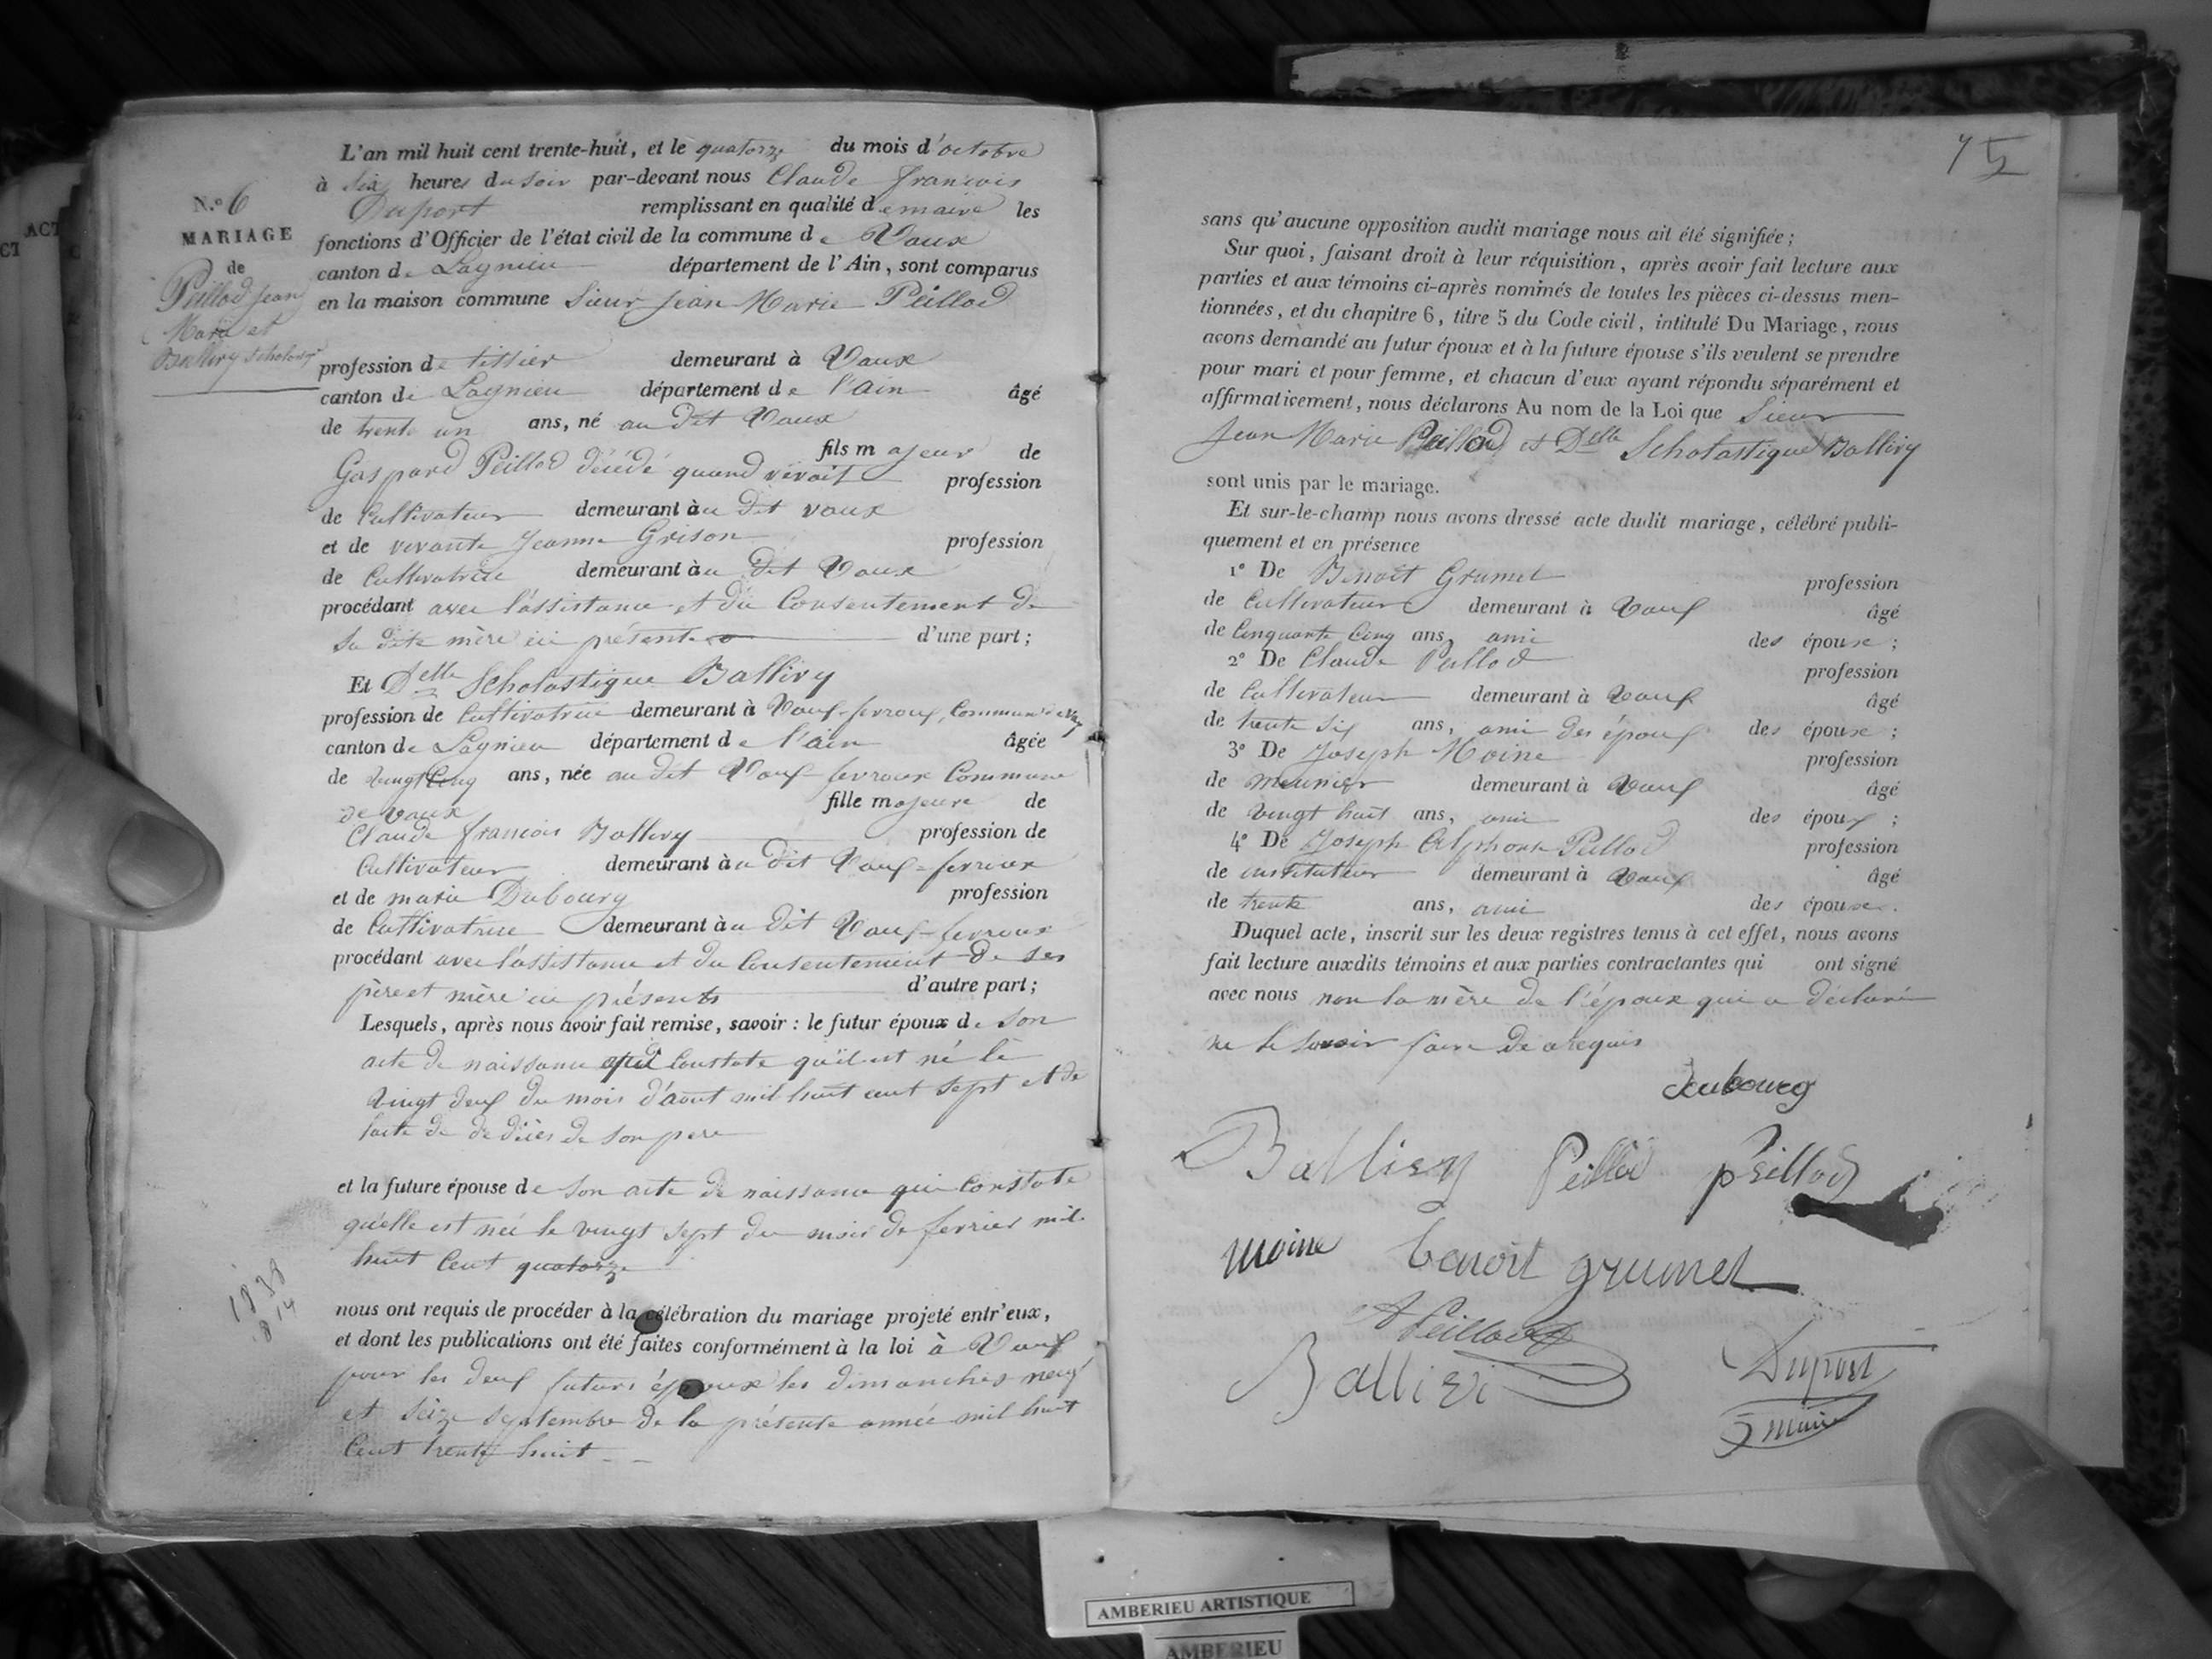 N.° 6
MARIAGE
de
Peillod Jean
Marie et
Ballivy Scholastiq
L'an mil huit cent trente-huit, et le quatorze du mois d'octobre
à six heures du soir par-devant nous Claude francois
Duport remplissant en qualité de maire les
fonctions d'Officier de l'état civil de la commune de Vaux
canton de Lagnieu département de l'Ain, sont comparus
en la maison commune Sieur Jean Marie Peillod
profession de tissier demeurant à Vaux
canton de Lagnieu département de l'ain âgé
de trente un ans, né au dit Vaux
fils majeur de
Gaspard Peillod décédé quand vivait profession
de Cultivateur demeurant àu dit vaux
et de vivante Jeanne Grison profession
de Cultivatrice demeurant àu dit Vaux
procédant avec l'assistance et du Consentement de
sa dite mère ici présente d'une part;
Et Delle Scholastique Ballivy
profession de Cultivatrice demeurant à Vaux-ferroux, Commune de Vaux
canton de Lagnieu département de l'ain âgée
de vingt Cinq ans, née au dit Vaux ferroux Commune
de Vaux fille majeure de
Claude francois Ballivy profession de
Cultivateur demeurant àu dit Vaux-ferroux
et de marie Dubourg profession
de Cultivatrice demeurant àu dit Vaux-ferroux
procédant avec l'assistance et du Consentement de ses
père et mère ici présents d'autre part;
Lesquels, après nous avoir fait remise, savoir : le futur époux de son
acte de naissance qui Constate qu'il est né le
vingt deux du mois d'aout mil huit cent sept et de
lacte de décès de son pere
et la future épouse de son acte de naissance qui Constate
qu'elle est née le vingt sept du mois de fevrier mil
huit Cent quatorze
1838
814
nous ont requis de procéder à la célébration du mariage projeté entr'eux,
et dont les publications ont été faites conformément à la loi à Vaux
pour les deux futurs époux les dimanches neuf
et seize septembre de la présente année mil huit
Cent trente huit
75
sans qu'aucune opposition audit mariage nous ait été signifiée;
Sur quoi, faisant droit à leur réquisition, après avoir fait lecture aux
parties et aux témoins ci-après nommés de toutes les pièces ci-dessus men-
tionnées, et du chapitre 6, titre 5 du Code civil, intitulé Du Mariage, nous
avons demandé au futur époux et à la future épouse s'ils veulent se prendre
pour mari et pour femme, et chacun d'eux ayant répondu séparément et
affirmativement, nous déclarons Au nom de la Loi que Sieur
Jean Marie Peillod et Delle Scholastique Ballivy
sont unis par le mariage.
Et sur-le-champ nous avons dressé acte dudit mariage, célébré publi-
quement et en présence
1° De Benoit Grumet profession
de Cultivateur demeurant à Vaux âgé
de Cinquante Cinq ans, ami des épouse;
2° De Claude Peillod profession
de Cultivateur demeurant à Vaux âgé
de trente six ans, ami des époux des épouse;
3° De Joseph Moine profession
de meunier demeurant à Vaux âgé
de vingt huit ans, ami des époux;
4° De Joseph Alphonse Peillod profession
de instituteur demeurant à Vaux âgé
de trente ans, ami des épouse.
Duquel acte, inscrit sur les deux registres tenus à cet effet, nous avons
fait lecture auxdits témoins et aux parties contractantes qui ont signé
avec nous non la mère de l'époux qui a déclaré
ne le savoir faire de ce requis
Dubourg
Ballivy Peillod peillod
moine benoit grumet
A Peillod
Ballivi Duport
maire
AMBERIEU ARTISTIQUE
AMBERIEU